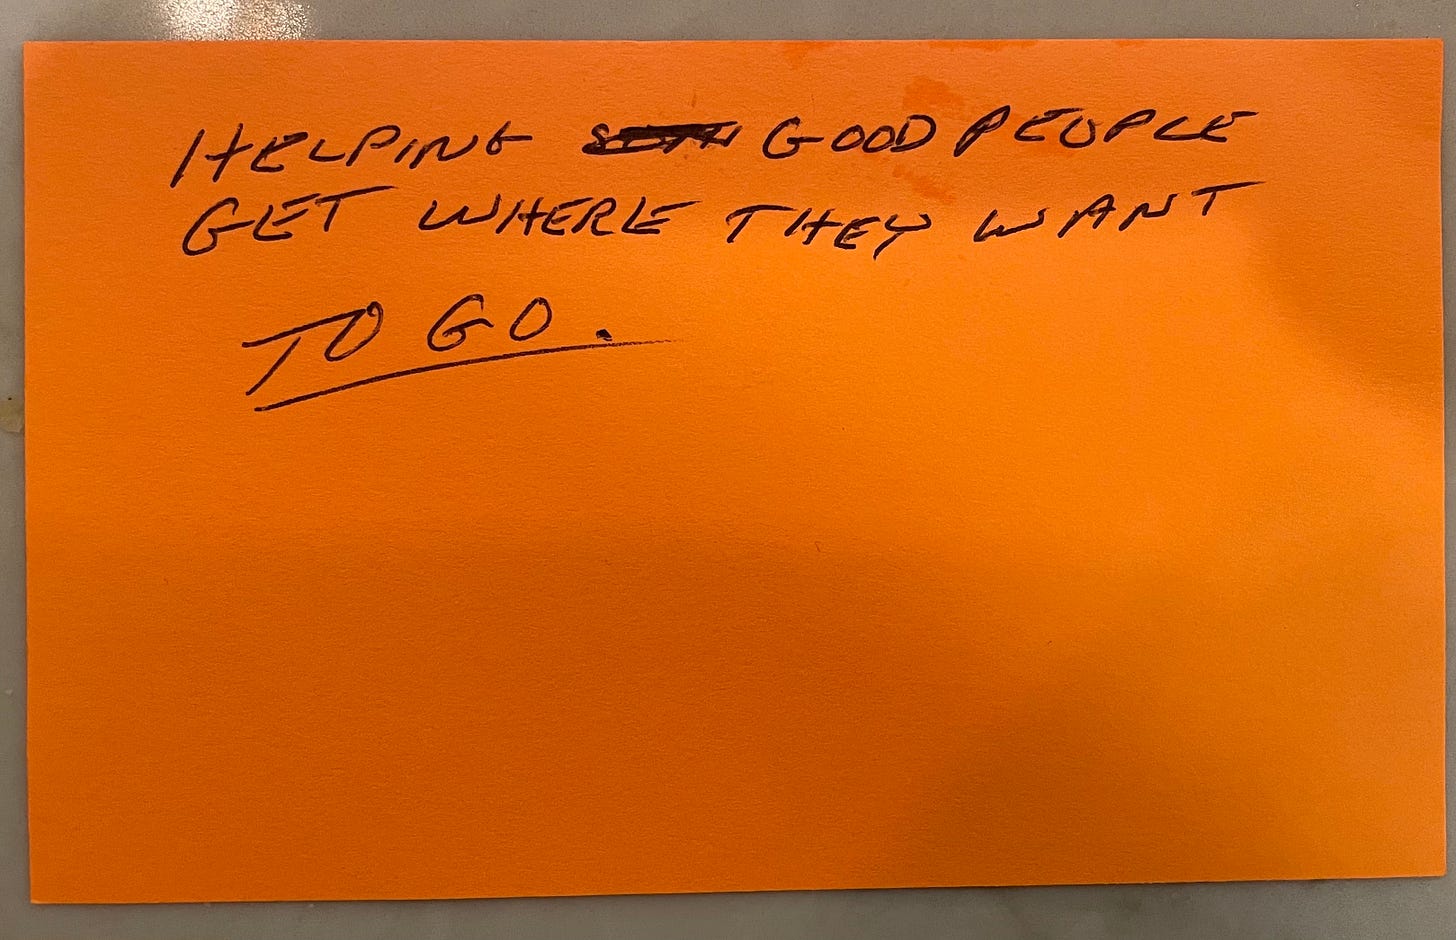 HELPING GOOD PEOPLE
GET WHERE THEY WANT
TO GO.